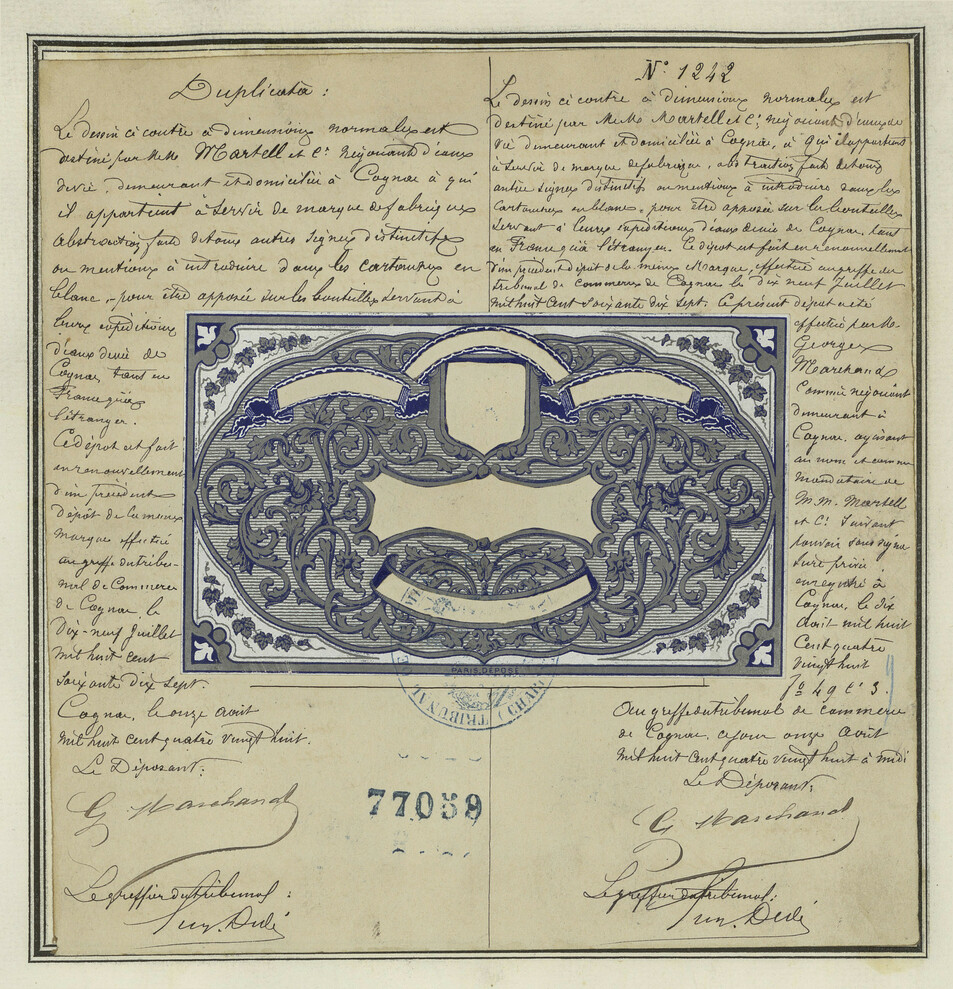 Duplicata :
Le dessin ci contre à dimensions normales est
destiné par M.M. Martell et Cie. Négociants d'eaux
de vie, demeurant et domiciliés à Cognac à qui
il appartient à servir de marque de fabrique
abstraction faite de tous autres signes distinctifs
ou mentions à introduire dans les cartouches en
blanc, pour être apposée sur les bouteilles servant à
leurs expéditions
d'eaux de vie de
Cognac, tant en
France qu'à
l'étranger.
Ce dépôt est fait
en renouvellement
d'un précédent
dépôt de la même
marque effectué
au greffe du tribu-
nal de Commerce
de Cognac le
Dix-neuf Juillet
mil huit cent
soixante dix sept.
Cognac, le onze août
mil huit cent quatre vingt huit.
Le Déposant:
G Marchand
Le greffier du tribunal :
Dedé
N° 1242
Le dessin ci contre à dimensions normales est
destiné par M.M. Martell et Cie, négociants d'eaux de
vie demeurant et domiciliés à Cognac, à qui il appartient
à servir de marque de fabrique, abstraction faite de tous
autres signes distinctifs ou mentions à introduire dans les
cartouches en blanc, pour être apposée sur les bouteilles
servant à leurs expéditions d'eaux de vie de Cognac, tant
en France qu'à l'étranger. Ce dépôt est fait en renouvellement
d'un précédent dépôt de la même Marque, effectué au greffe du
tribunal de commerce de Cognac le dix neuf Juillet
mil huit cent soixante dix sept. Ce présent dépôt a été
effectué par M.
Georges
Marchand
Commis négociant
demeurant à
Cognac, agissant
au nom et comme
mandataire de
M.M. Martell
et Cie. suivant
pouvoir sous signa
ture privée
enregistré à
Cognac le dix
août mil huit
cent quatre
vingt huit
fo 49 c 3.
Au greffe du tribunal de commerce
de Cognac, ce jour onze août
mil huit cent quatre vingt huit à midi
Le Déposant,
G Marchand
Le greffier du tribunal:
Dedé
PARIS. DÉPOSÉ
TRIBUNAL
77059